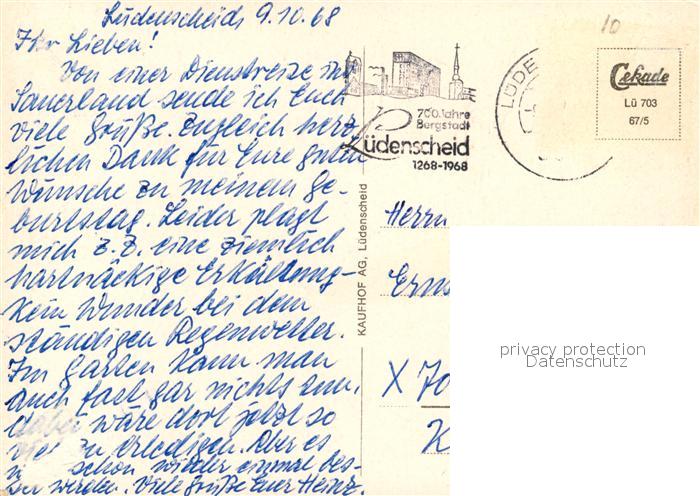 Lüdenscheid, 9.10.68
Ihr Lieben!
Von einer Dienstreise ins
Sauerland sende ich Euch
viele Grüße. Zugleich herz-
lichen Dank für Eure guten
Wünsche zu meinem Ge-
burtstag. Leider plagt
mich z.Z. eine ziemlich
hartnäckige Erkältung-
Kein Wunder bei dem
ständigen Regenwetter.
Im Garten kann man
auch fast gar nichts tun,
dabei wäre dort jetzt so
viel zu erledigen. Aber es
schon wieder einmal bes-
werden. Viele Grüße Euer Heinz.
700 Jahre
Bergstadt
Lüdenscheid
1268-1968
LÜDE
10
Cekade
Lü 703
67/5
KAUFHOF AG, Lüdenscheid
Herrn
Erns
X 70
K
privacy protection
Datenschutz